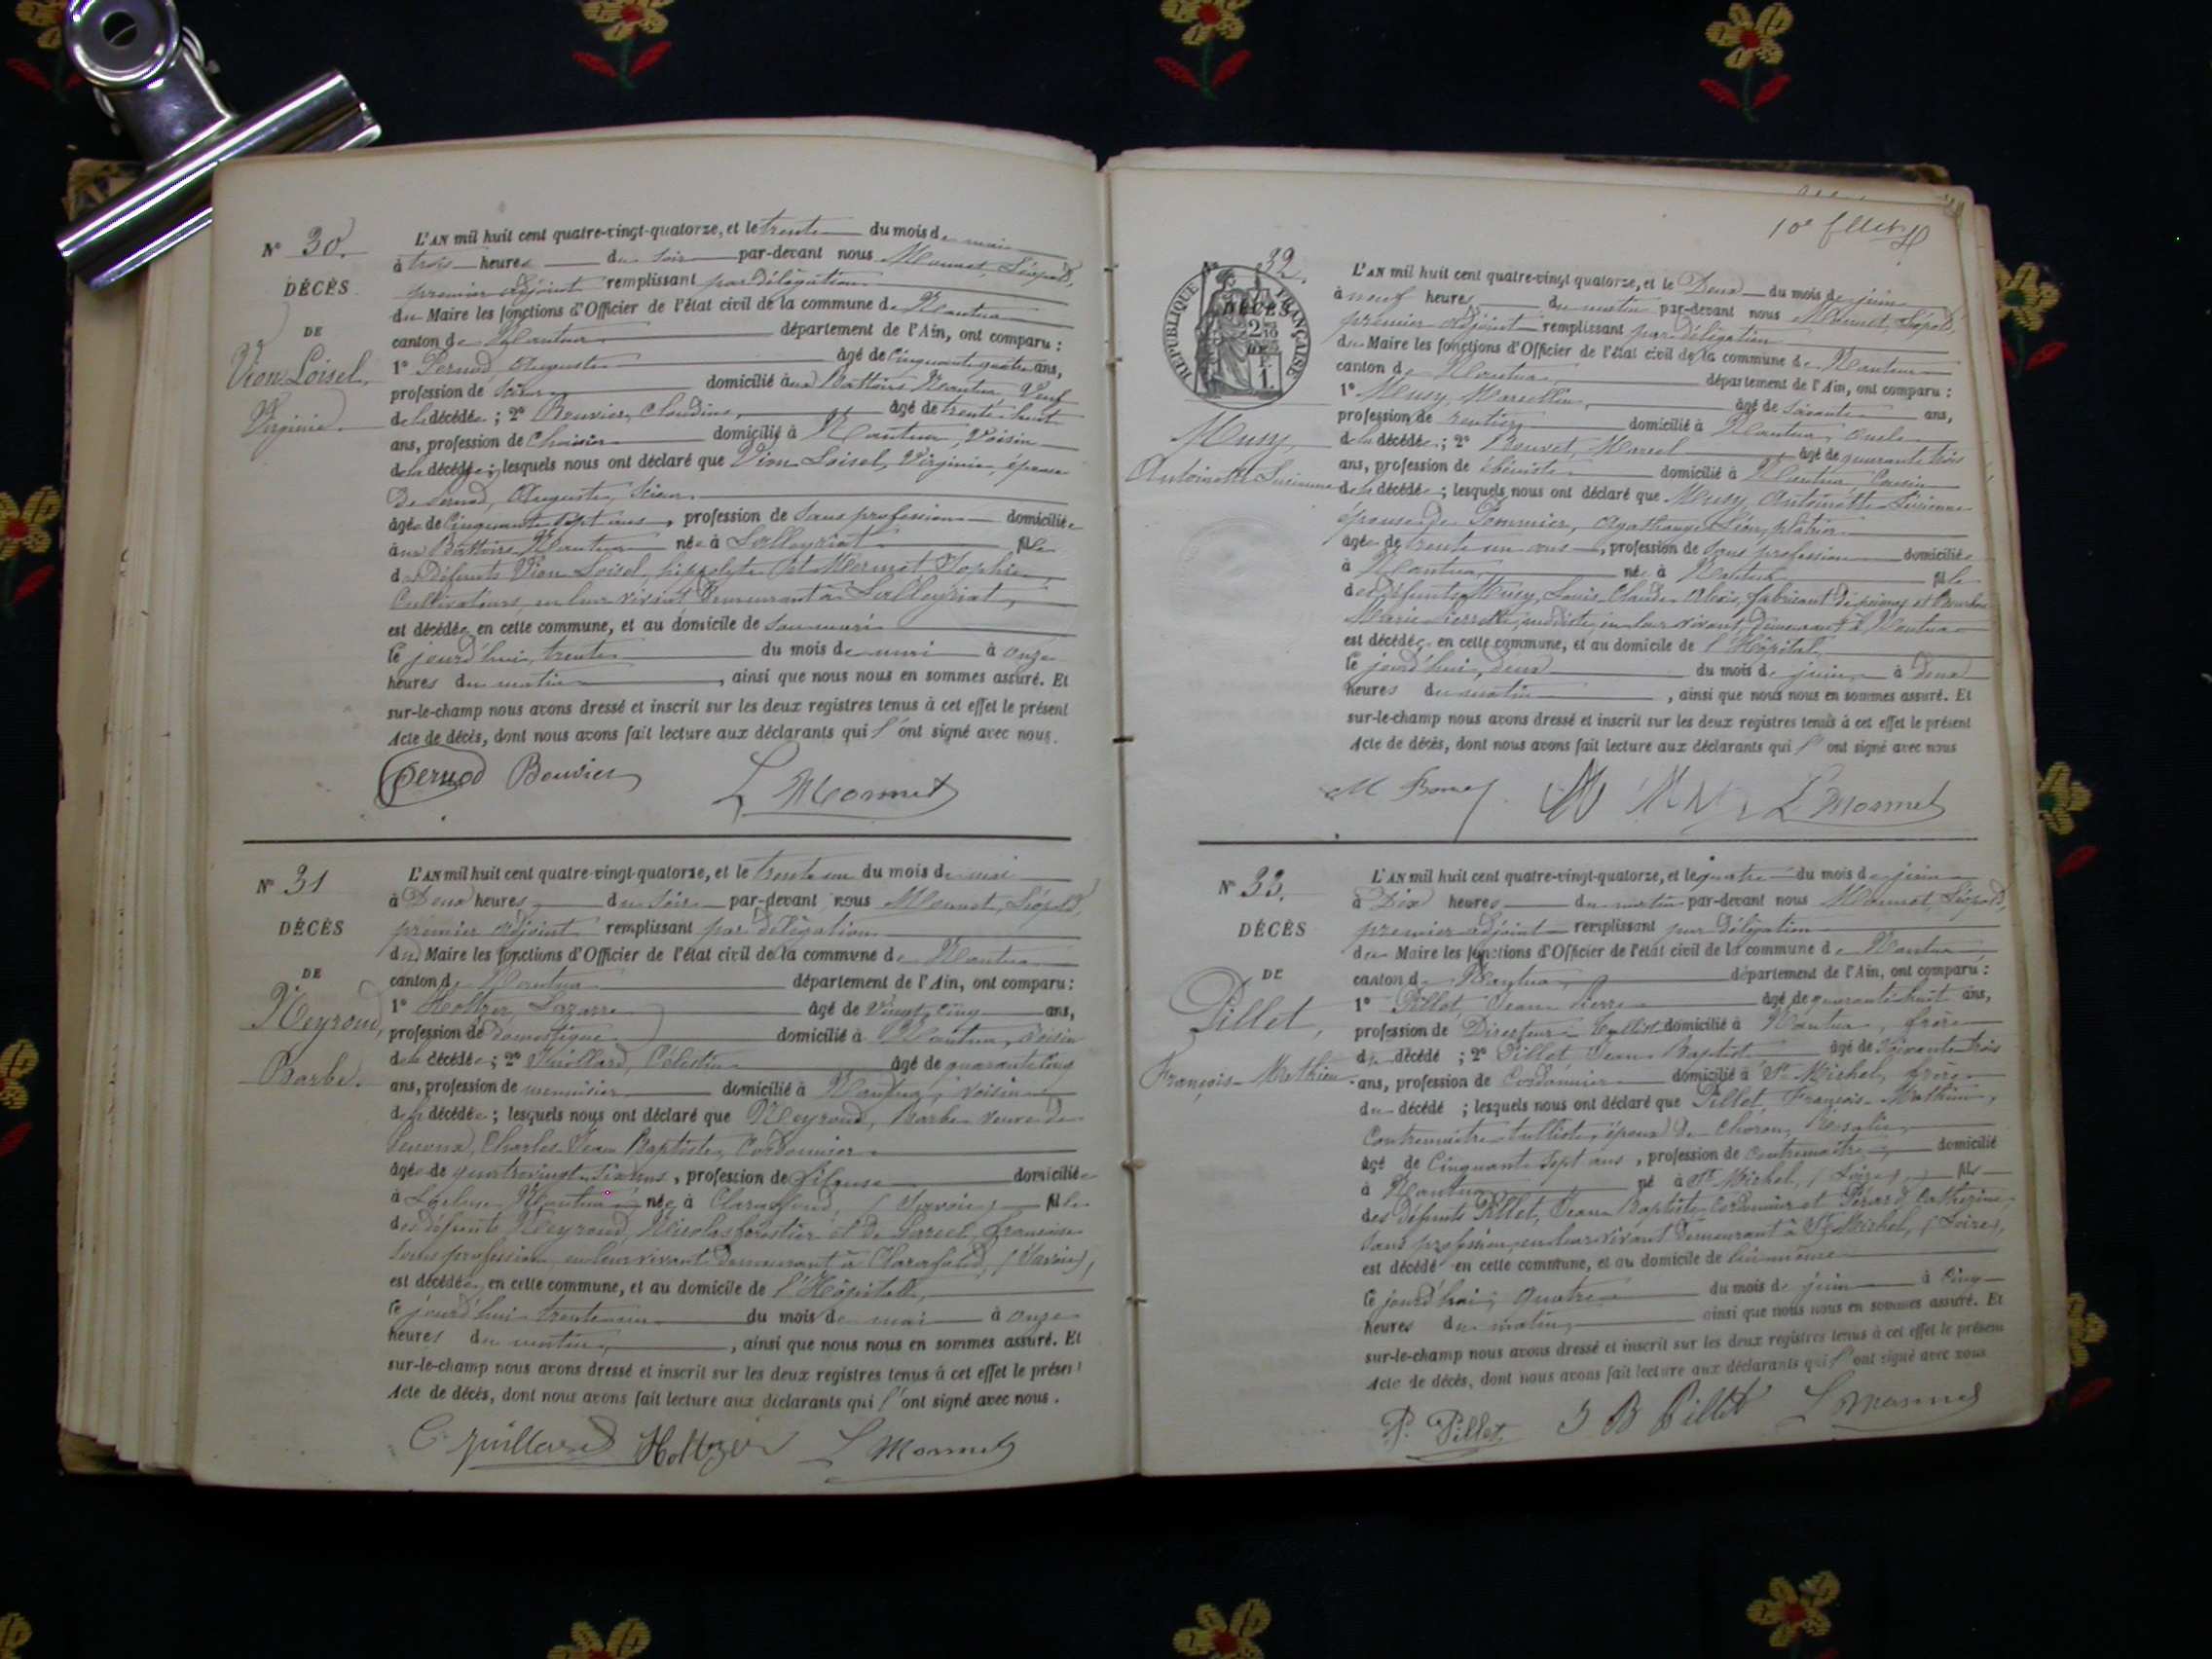 N° 30.
DÉCÈS
DE
Vion Loisel,
Virginie.
L'AN mil huit cent quatre-vingt-quatorze, et le trente du mois de mai
à trois heures du soir par-devant nous Monnet, Léopold,
premier adjoint remplissant par délégation
du Maire les fonctions d'Officier de l'état civil de la commune de Nantua
canton de Nantua département de l'Ain, ont comparu :
1° Pernod Auguste âgé de cinquante quatre ans,
profession de scieur domicilié aux Battoirs Nantua Veuf
de la décédée ; 2° Bouvier, Claudius, âgé de trente huit
ans, profession de Chaisier domicilié à Nantua, Voisin
de la décédée ; lesquels nous ont déclaré que Vion Loisel, Virginie, épouse
de Pernod, Auguste, Scieur
âgée de Cinquante sept ans, profession de Sans profession domiciliée
aux Battoirs Nantua née à Lalleyriat fille
des défunts Vion Loisel, hippolyte et Mermet Sophie
Cultivateurs, en leur vivant demeurant à Lalleyriat,
est décédée en cette commune, et au domicile de son mari
le jourd'hui, trente du mois de mai à onze
heures du matin, ainsi que nous nous en sommes assuré. Et
sur-le-champ nous avons dressé et inscrit sur les deux registres tenus à cet effet le présent
Acte de décès, dont nous avons fait lecture aux déclarants qui l'ont signé avec nous.
Pernod Bouvier L Monnet
N° 31
DÉCÈS
DE
Neyroud,
Barbe.
L'AN mil huit cent quatre-vingt-quatorze, et le trente un du mois de mai
à Deux heures du soir par-devant nous Monnet, Léopold,
premier adjoint remplissant par délégation
du Maire les fonctions d'Officier de l'état civil de la commune de Nantua
canton de Nantua département de l'Ain, ont comparu :
1° Holtzer, Lazarre âgé de vingt cinq ans,
profession de domestique domicilié à Nantua, voisin
de la décédée ; 2° Juillard, Célestin âgé de quarante cinq
ans, profession de menuisier domicilié à Nantua, voisin
de la décédée ; lesquels nous ont déclaré que Neyroud, Barbe veuve de
Charles Jean Baptiste, Cordonnier
âgée de quatre vingt six ans, profession de fileuse domiciliée
à Nantua née à Clarafond, (Savoie) fille
des défunts Neyroud, Nicolas forestier et de françoise
sans profession, en leur vivant demeurant à Clarafond, (Savoie),
est décédée en cette commune, et au domicile de l'Hôpital,
le jourd'hui trente un du mois de mai à onze
heures du matin, ainsi que nous nous en sommes assuré. Et
sur-le-champ nous avons dressé et inscrit sur les deux registres tenus à cet effet le présent
Acte de décès, dont nous avons fait lecture aux déclarants qui l'ont signé avec nous.
C Juillard Holtzer L Monnet
10e
N° 32.
DÉCÈS
RÉPUBLIQUE FRANÇAISE
Musy,
Antoinette Lucienne
L'AN mil huit cent quatre-vingt quatorze, et le Deux du mois de juin
à neuf heures du matin par-devant nous Monnet, Léopold,
premier adjoint remplissant par délégation
du Maire les fonctions d'Officier de l'état civil de la commune de Nantua
canton de Nantua, département de l'Ain, ont comparu :
1° Musy, Marcellin, âgé de soixante ans,
profession de rentier, domicilié à Nantua, oncle
de la décédée ; 2° Bouvet, Marcel âgé de quarante trois
ans, profession de ébéniste domicilié à Nantua Cousin
de la décédée ; lesquels nous ont déclaré que Musy Antoinette Lucienne
épouse de Pommier, Agathange Léon, plâtrier
âgée de trente un ans, profession de sans profession domiciliée
à Nantua, née à Nantua fille
des défunts Musy, Louis Claude Alexis, fabricant de peignes et
Marie Pierrette, en leur vivant demeurant à Nantua
est décédée en cette commune, et au domicile de l'Hôpital,
le jourd'hui, deux du mois de juin à deux
heures du matin, ainsi que nous nous en sommes assuré. Et
sur-le-champ nous avons dressé et inscrit sur les deux registres tenus à cet effet le présent
Acte de décès, dont nous avons fait lecture aux déclarants qui l'ont signé avec nous
L Monnet
N° 33.
DÉCÈS
DE
Pillet,
François-Mathieu
L'AN mil huit cent quatre-vingt-quatorze, et le quatre du mois de juin
à Dix heures du matin par-devant nous Monnet, Léopold,
premier adjoint remplissant par délégation
du Maire les fonctions d'Officier de l'état civil de la commune de Nantua
canton de Nantua, département de l'Ain, ont comparu :
1° Pillet, Jean Pierre âgé de quarante huit ans,
profession de Directeur domicilié à Nantua, frère
du décédé ; 2° Pillet Jean Baptiste âgé de soixante trois
ans, profession de Cordonnier domicilié à St Michel, frère
du décédé ; lesquels nous ont déclaré que Pillet, François-Mathieu,
Contremaître tulliste, époux de Choron, Rosalie,
âgé de Cinquante sept ans, profession de Contremaître domicilié
à Nantua né à St Michel, (Loire) fils
des défunts Pillet, Jean Baptiste, Cordonnier et Pérard, Catherine,
sans profession, en leur vivant demeurant à St Michel, (Loire),
est décédé en cette commune, et au domicile de lui-même
le jourd'hui, quatre du mois de juin à cinq
heures du matin, ainsi que nous nous en sommes assuré. Et
sur-le-champ nous avons dressé et inscrit sur les deux registres tenus à cet effet le présent
Acte de décès, dont nous avons fait lecture aux déclarants qui l'ont signé avec nous
P. Pillet J B Pillet L Monnet